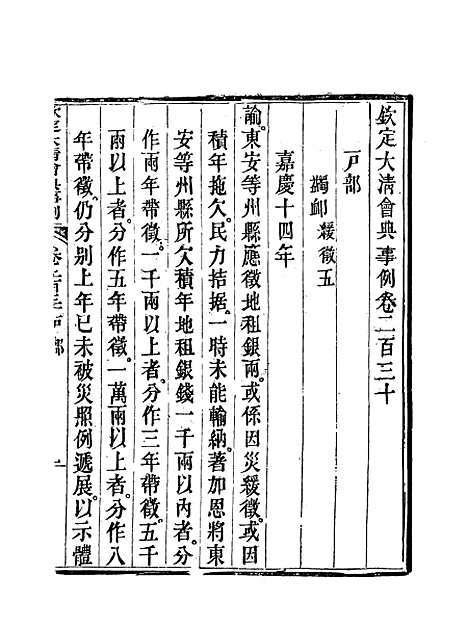 欽定大清會典事例卷二百三十
戶部
蠲卹 緩徵五
嘉慶十四年
諭東安等州縣應徵地租銀兩或係因災緩徵或因
積年拖欠民力拮据一時未能輸納著加恩將東
安等州縣所欠積年地租銀錢一千兩以內者分
作兩年帶徵一千兩以上者分作三年帶徵五千
兩以上者分作五年帶徵一萬兩以上者分作八
年帶徵仍分別上年已未被災照例遞展以示體
欽定大清會典事例 卷二百三十 戶部 一